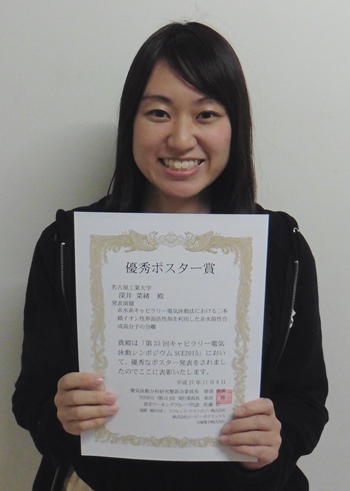 優秀ポスター賞
名古屋工業大学
深井 菜緒 殿
発表演題
非水系キャピラリー電気泳動法における二本
鎖イオン性界面活性剤を利用した非水溶性合
成高分子の分離
貴殿は「第35回キャピラリー電気
泳動シンポジウムSCE2015」におい
て、優秀なポスター発表をされまし
たのでここに表彰いたします。
平成27年11月6日
電気泳動分析研究懇談会委員長